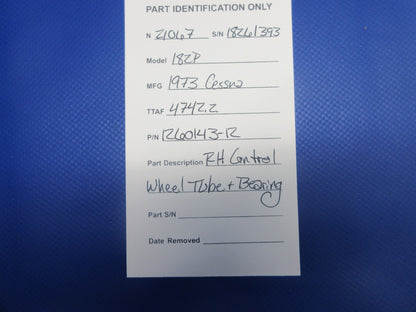 PART IDENTIFICATION ONLY
N 21067 S/N 18261393
Model 182P
MFG 1973 Cessna
TTAF 4742.2
P/N 1260143-12
Part Description RH Control
Wheel Tube + Bearing
Part S/N
Date Removed